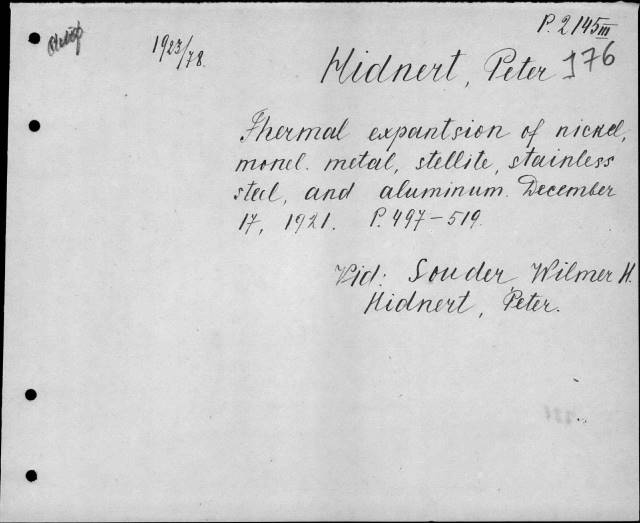 P. 2145 III
1923/78.
Hidnert, Peter 176
Thermal expantsion of nickel,
monel. metal, stellite, stainless
steel, and aluminum. December
17, 1921. P. 497-519.
Vid: Souder, Wilmer H.
Hidnert, Peter.